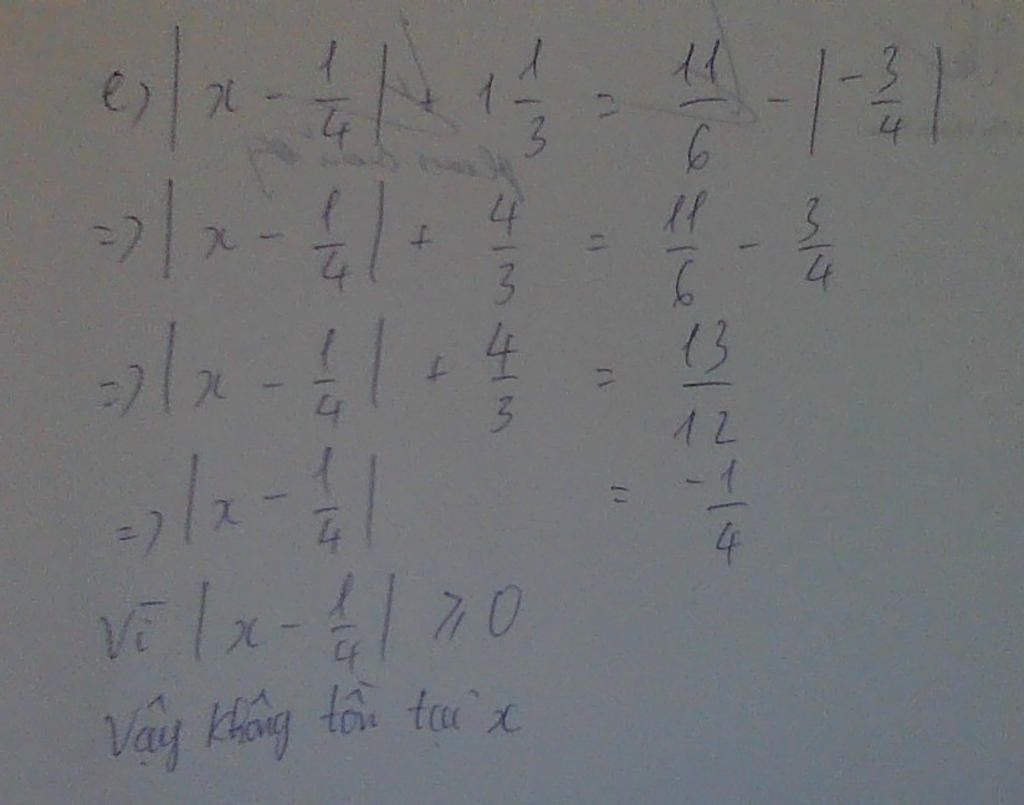 e) | x - 1/4 | + 1 1/3 = 11/6 - | -3/4 |
=> | x - 1/4 | + 4/3 = 11/6 - 3/4
=> | x - 1/4 | + 4/3 = 13/12
=> | x - 1/4 | = -1/4
Vì | x - 1/4 | ⩾ 0
Vậy không tồn tại x